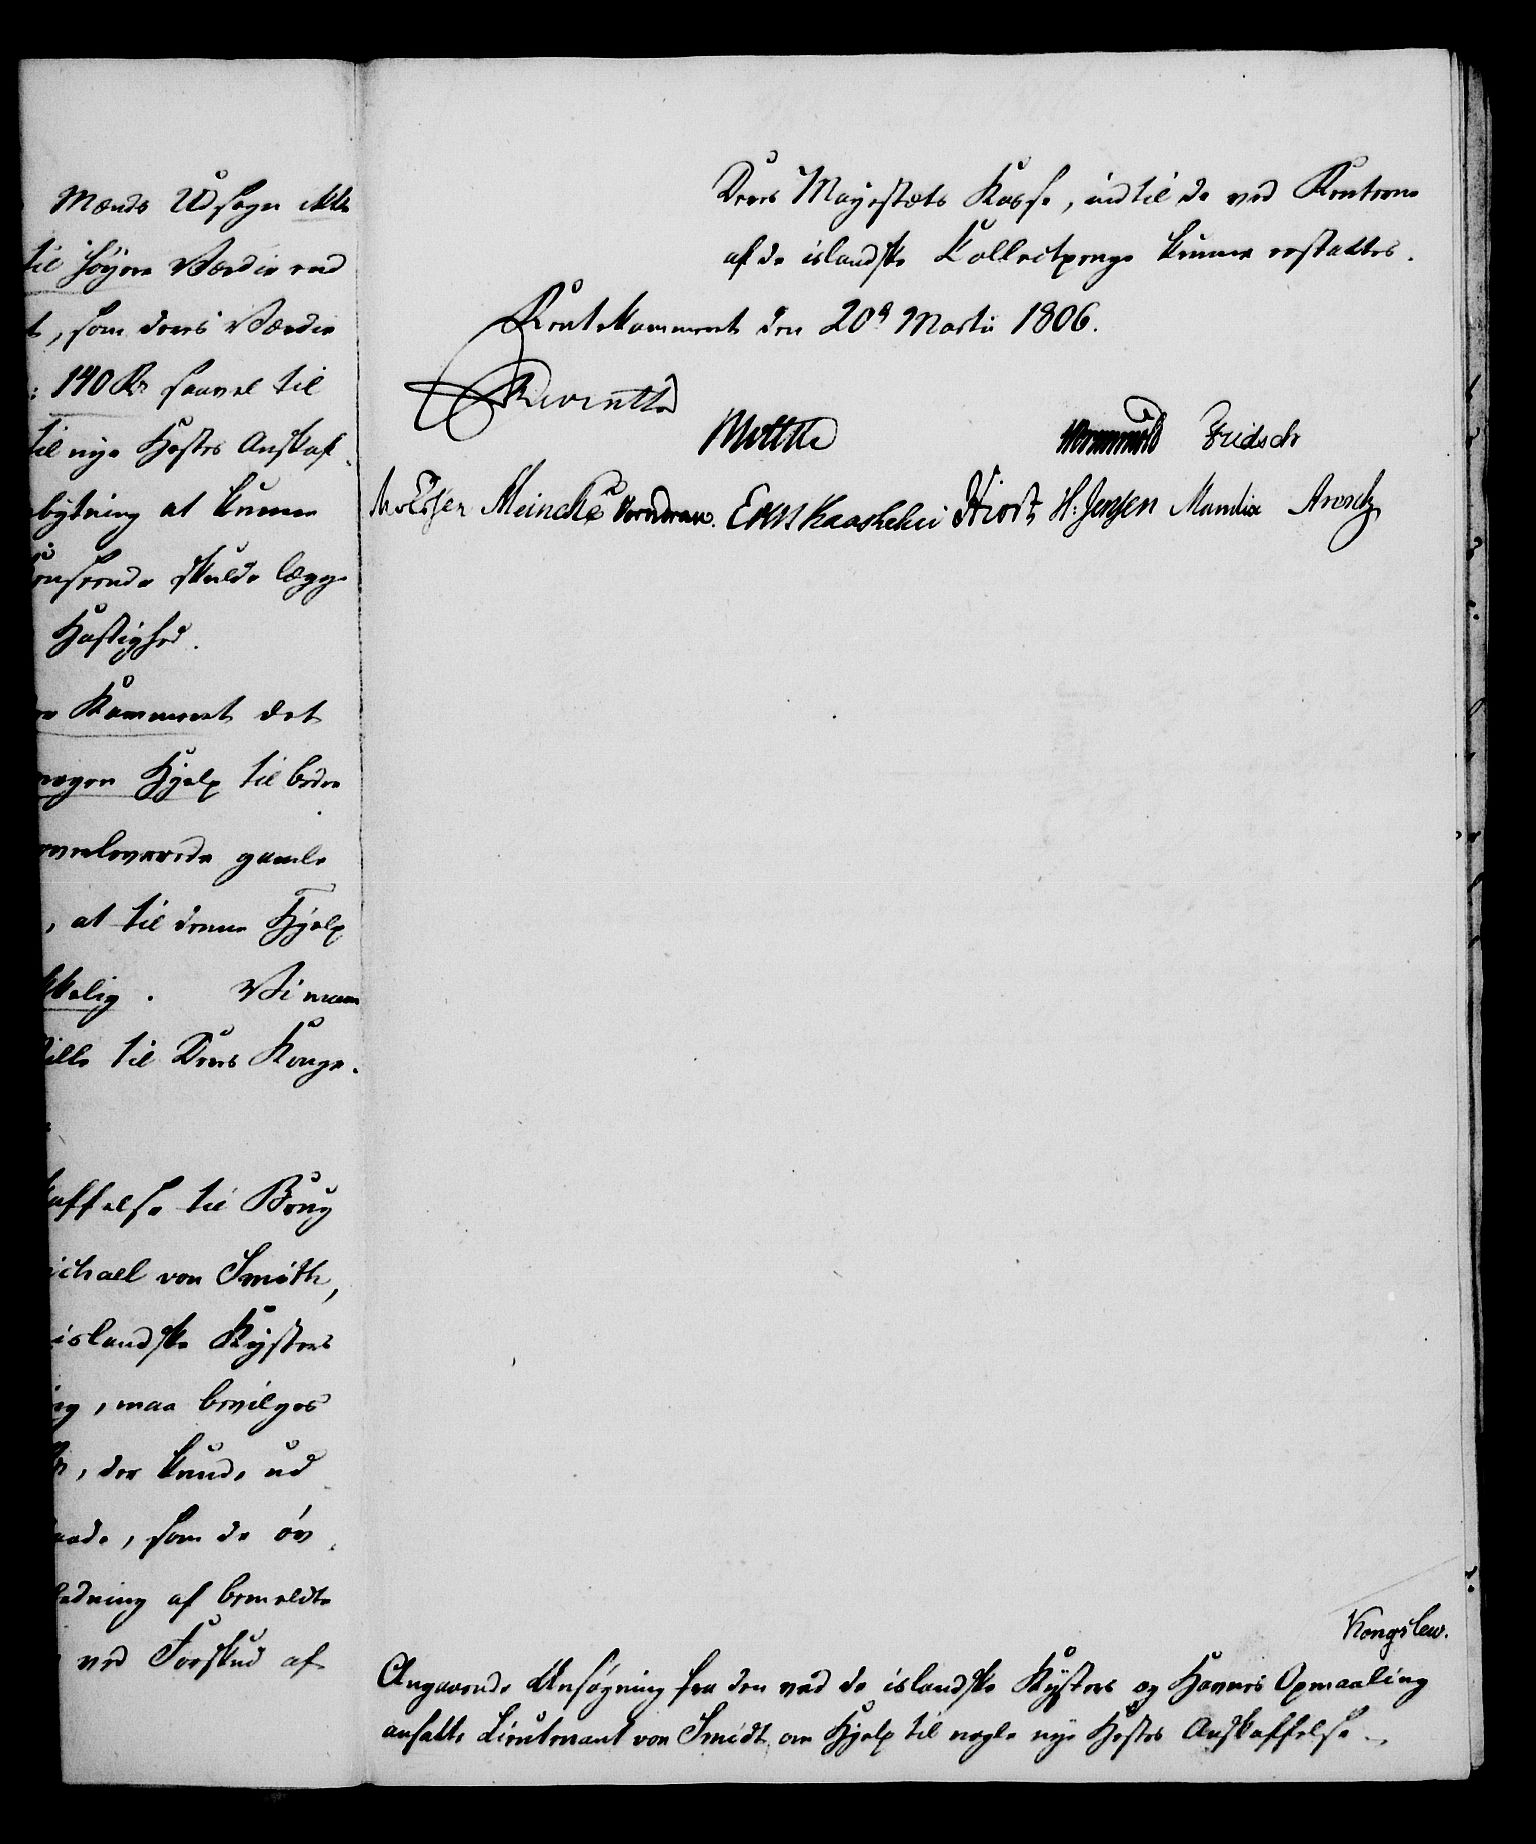 Mænds Udsagn ikke
til høyere Værdie end
t, som deres Værdie
: 140 Rd saavel til
til nye Hestes Anskaf-
bytning at kunne
ansøende skulde lægge
Hastighed.
Kammeret det
nogen Hjelp til bedre
gamle
, at til denne Hjelp
kkelig. Vi maae
ille til Deres Konge-
kaffelse til Brug
ichael von Smith,
islandske Kysters
ng, maae bevilges
, der kunde ud-
aade, som de öv-
ledning af bemeldte
ved Forskud af
Deres Majestæts Kasse, indtil de ved Renterne
af de islandske Collectpenge kunne erstattes.
Rentekammeret den 20de Martii 1806.
Reventlo
Møtth
Wormskiold Fridsch
Meincke Knudsen Hiort H. Jensen Mandix Arentz
Kongslew.
Angaaende Ansøgning fra den ved de islandske Kysters og Havnes Opmaaling
ansatte Lieutenant von Smidt, om Hjelp til nogle nye Hestes Anskaffelse.